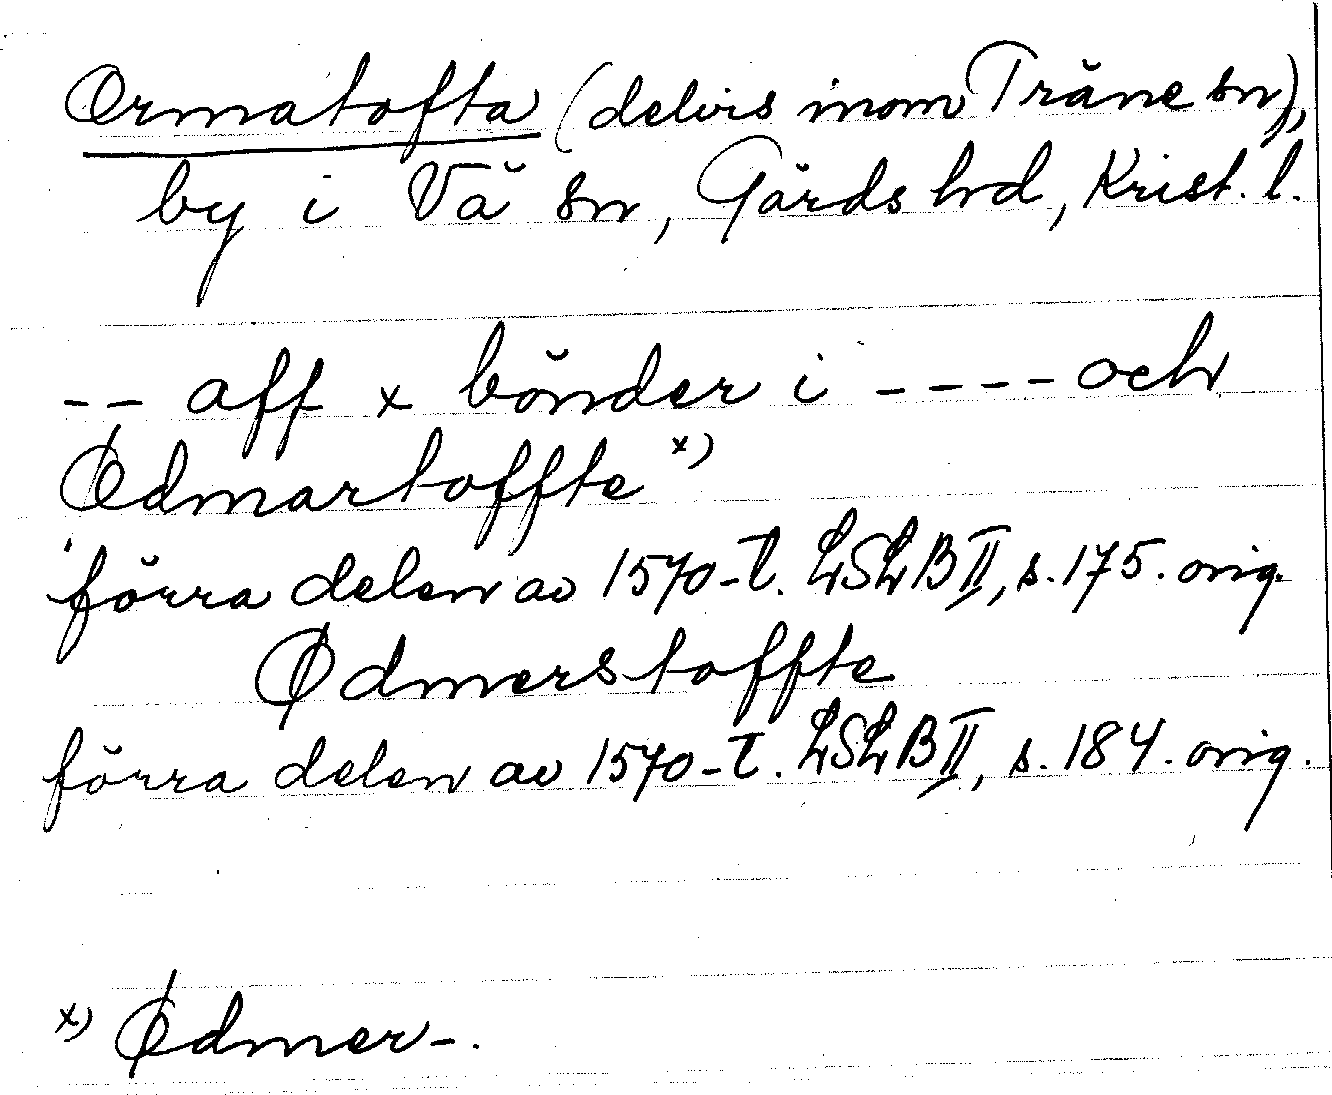 Ormatofta (delvis inom Träne sn),
by i Vä sn, Gärds hd, Krist. l.
-- aff x bönder i ---- och
Ødmartoffte x)
förra delen av 1570-t. LSLB II, s. 175. orig.
Ødmerstoffte
förra delen av 1570-t. LSLB II, s. 184. orig.
x) Ødmer-.